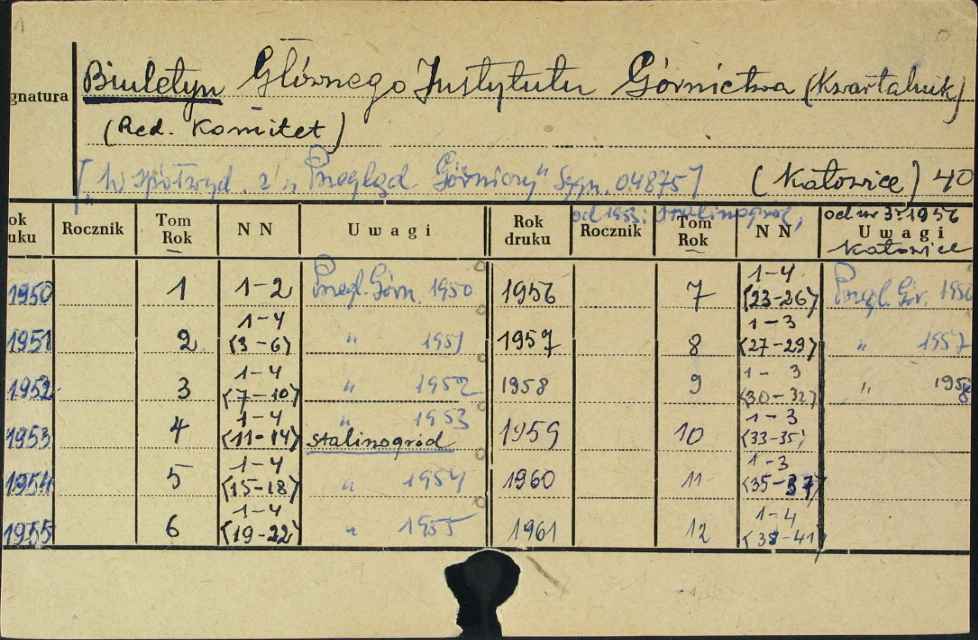 Biuletyn Głównego Instytutu Górnictwa (Kwartalnik)
gnatura
(Red. Komitet)
[Współwyd. z: „Przegląd Górniczy" Sygn. 04875] (Katowice) 40
od 1953: Stalinogród, od nr 3:1956
Katowice
ok uku Rocznik Tom Rok NN Uwagi Rok druku Rocznik Tom Rok NN Uwagi
1950 1 1-2 Przegl. Górn. 1950 1956 7 1-4 (23-26) Przegl. Gór. 1956
1951 2 1-4 (3-6) " 1951 1957 8 1-3 (27-29) " 1957
1952 3 1-4 (7-10) " 1952 1958 9 1-3 (30-32) " 1958
1953 4 1-4 (11-14) " 1953 Stalinogród 1959 10 1-3 (33-35)
1954 5 1-4 (15-18) " 1954 1960 11 1-3 (35-37)
1955 6 1-4 (19-22) " 1955 1961 12 1-4 (38-41)